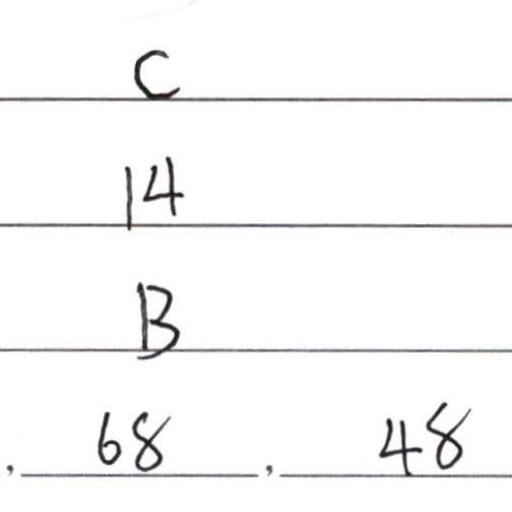 C
14
B
, 68 , 48